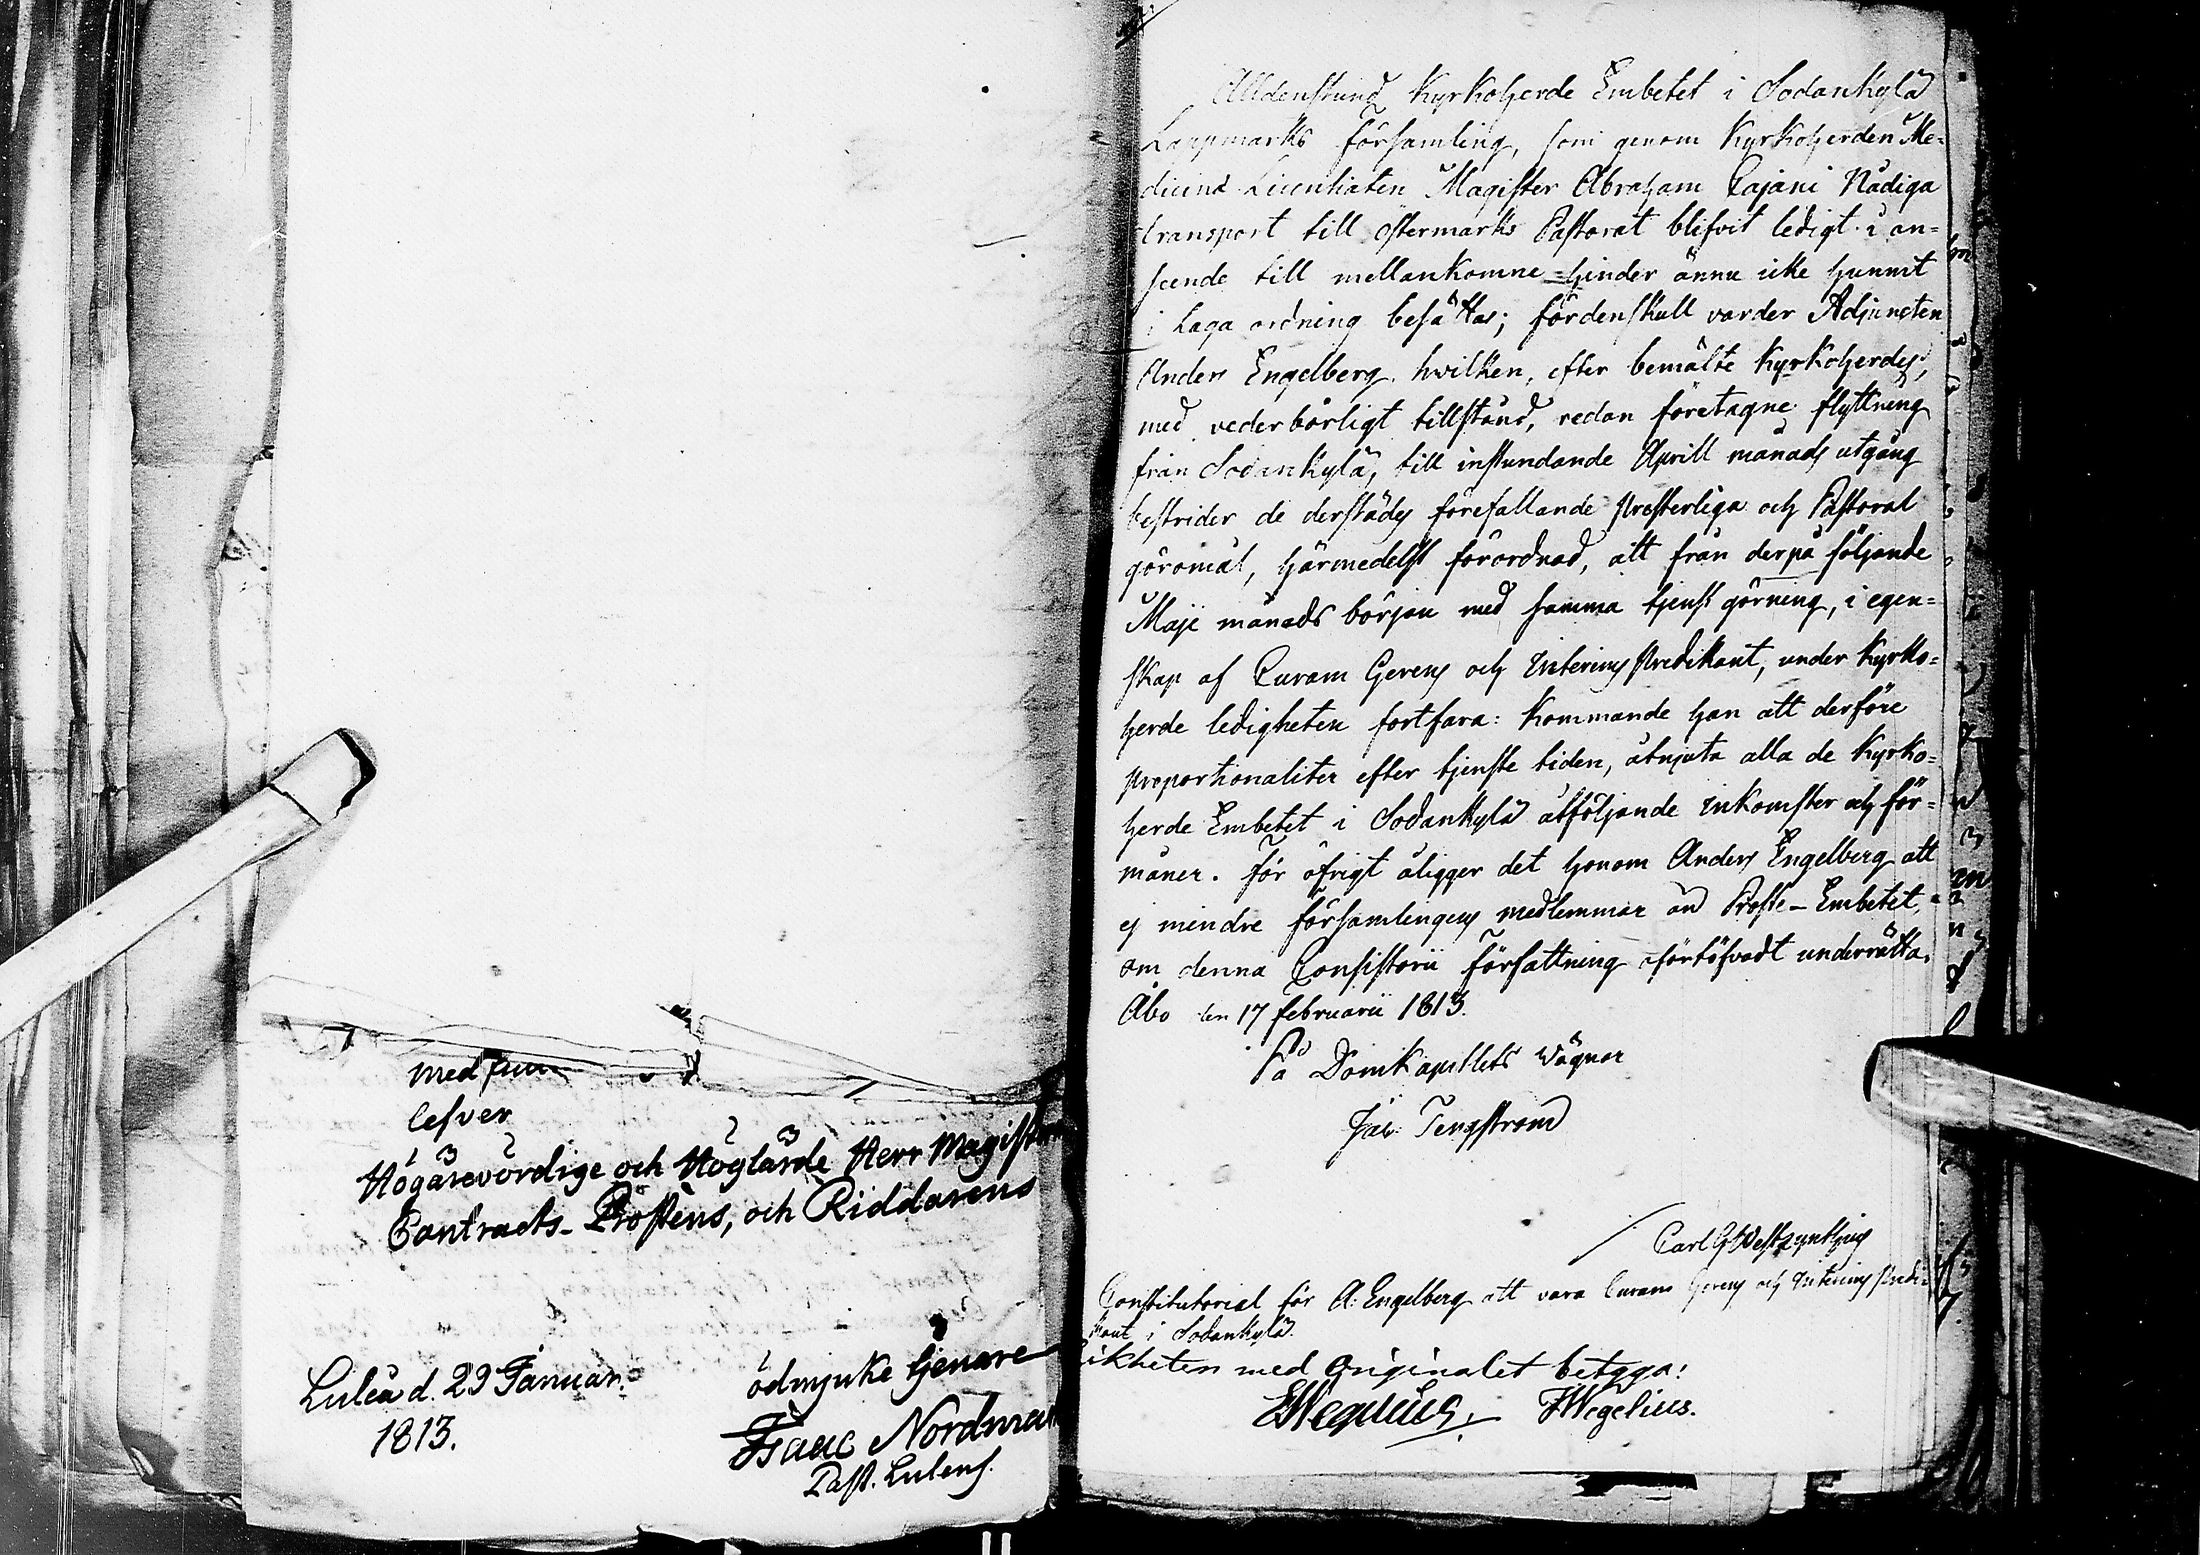 med
lefver
Högärevördige och Höglärde Herr Magistern
Contracts-Prostens, och Riddarens
Luleå d. 29 Januar.
1813.
ödmjuke tjenare
Isaac Nordman
Past. Lulens.
Alldenstund Kyrkoherde Embetet i Sodankylä
Lappmarks församling, som genom Kyrkoherden Me-
dicinä Licentiaten Magister Abraham Cajani Nådiga
transport till Östermarks Pastorat blifvit ledigt i an-
seende till mellankomne hinder ännu icke hunnit
i Laga ordning besättas; fördenskull varder Adjuncten
Anders Engelberg, hvilken, efter bemälte Kyrkoherdes,
med vederbörligt tillstånd, redan företagne flyttning
från Sodankylä, till instundande Aprill månads utgång
bestrider de derstädes förefallande presterliga och Pastoral
göromål, härmedelst förordnad, att från derpå följande
Maji månads början med samma tjenst görning, i egen-
skap af Curam Gerens och Interims predikant, under Kyrko-
herde ledigheten fortfara: Kommande han att derföre
proportionaliter efter tjenste tiden, åtnjuta alla de Kyrko-
herde Embetet i Sodankylä åtföljande inkomster och för-
måner. För öfrigt åligger det honom Anders Engelberg att
ej mindre församlingens medlemmar än Proste-Embetet,
om denna Consistorii författning oförtöfvadt underrätta.
Åbo den 17 februarii 1813.
På Domkapitlets vägnar
Jac. Tengström
Carl G
Constitutorial för A: Engelberg att vara Curam Gerens och Interims predi-
kant i Sodankylä.
Likheten med Originalet betyga:
Wegelius. Wegelius.